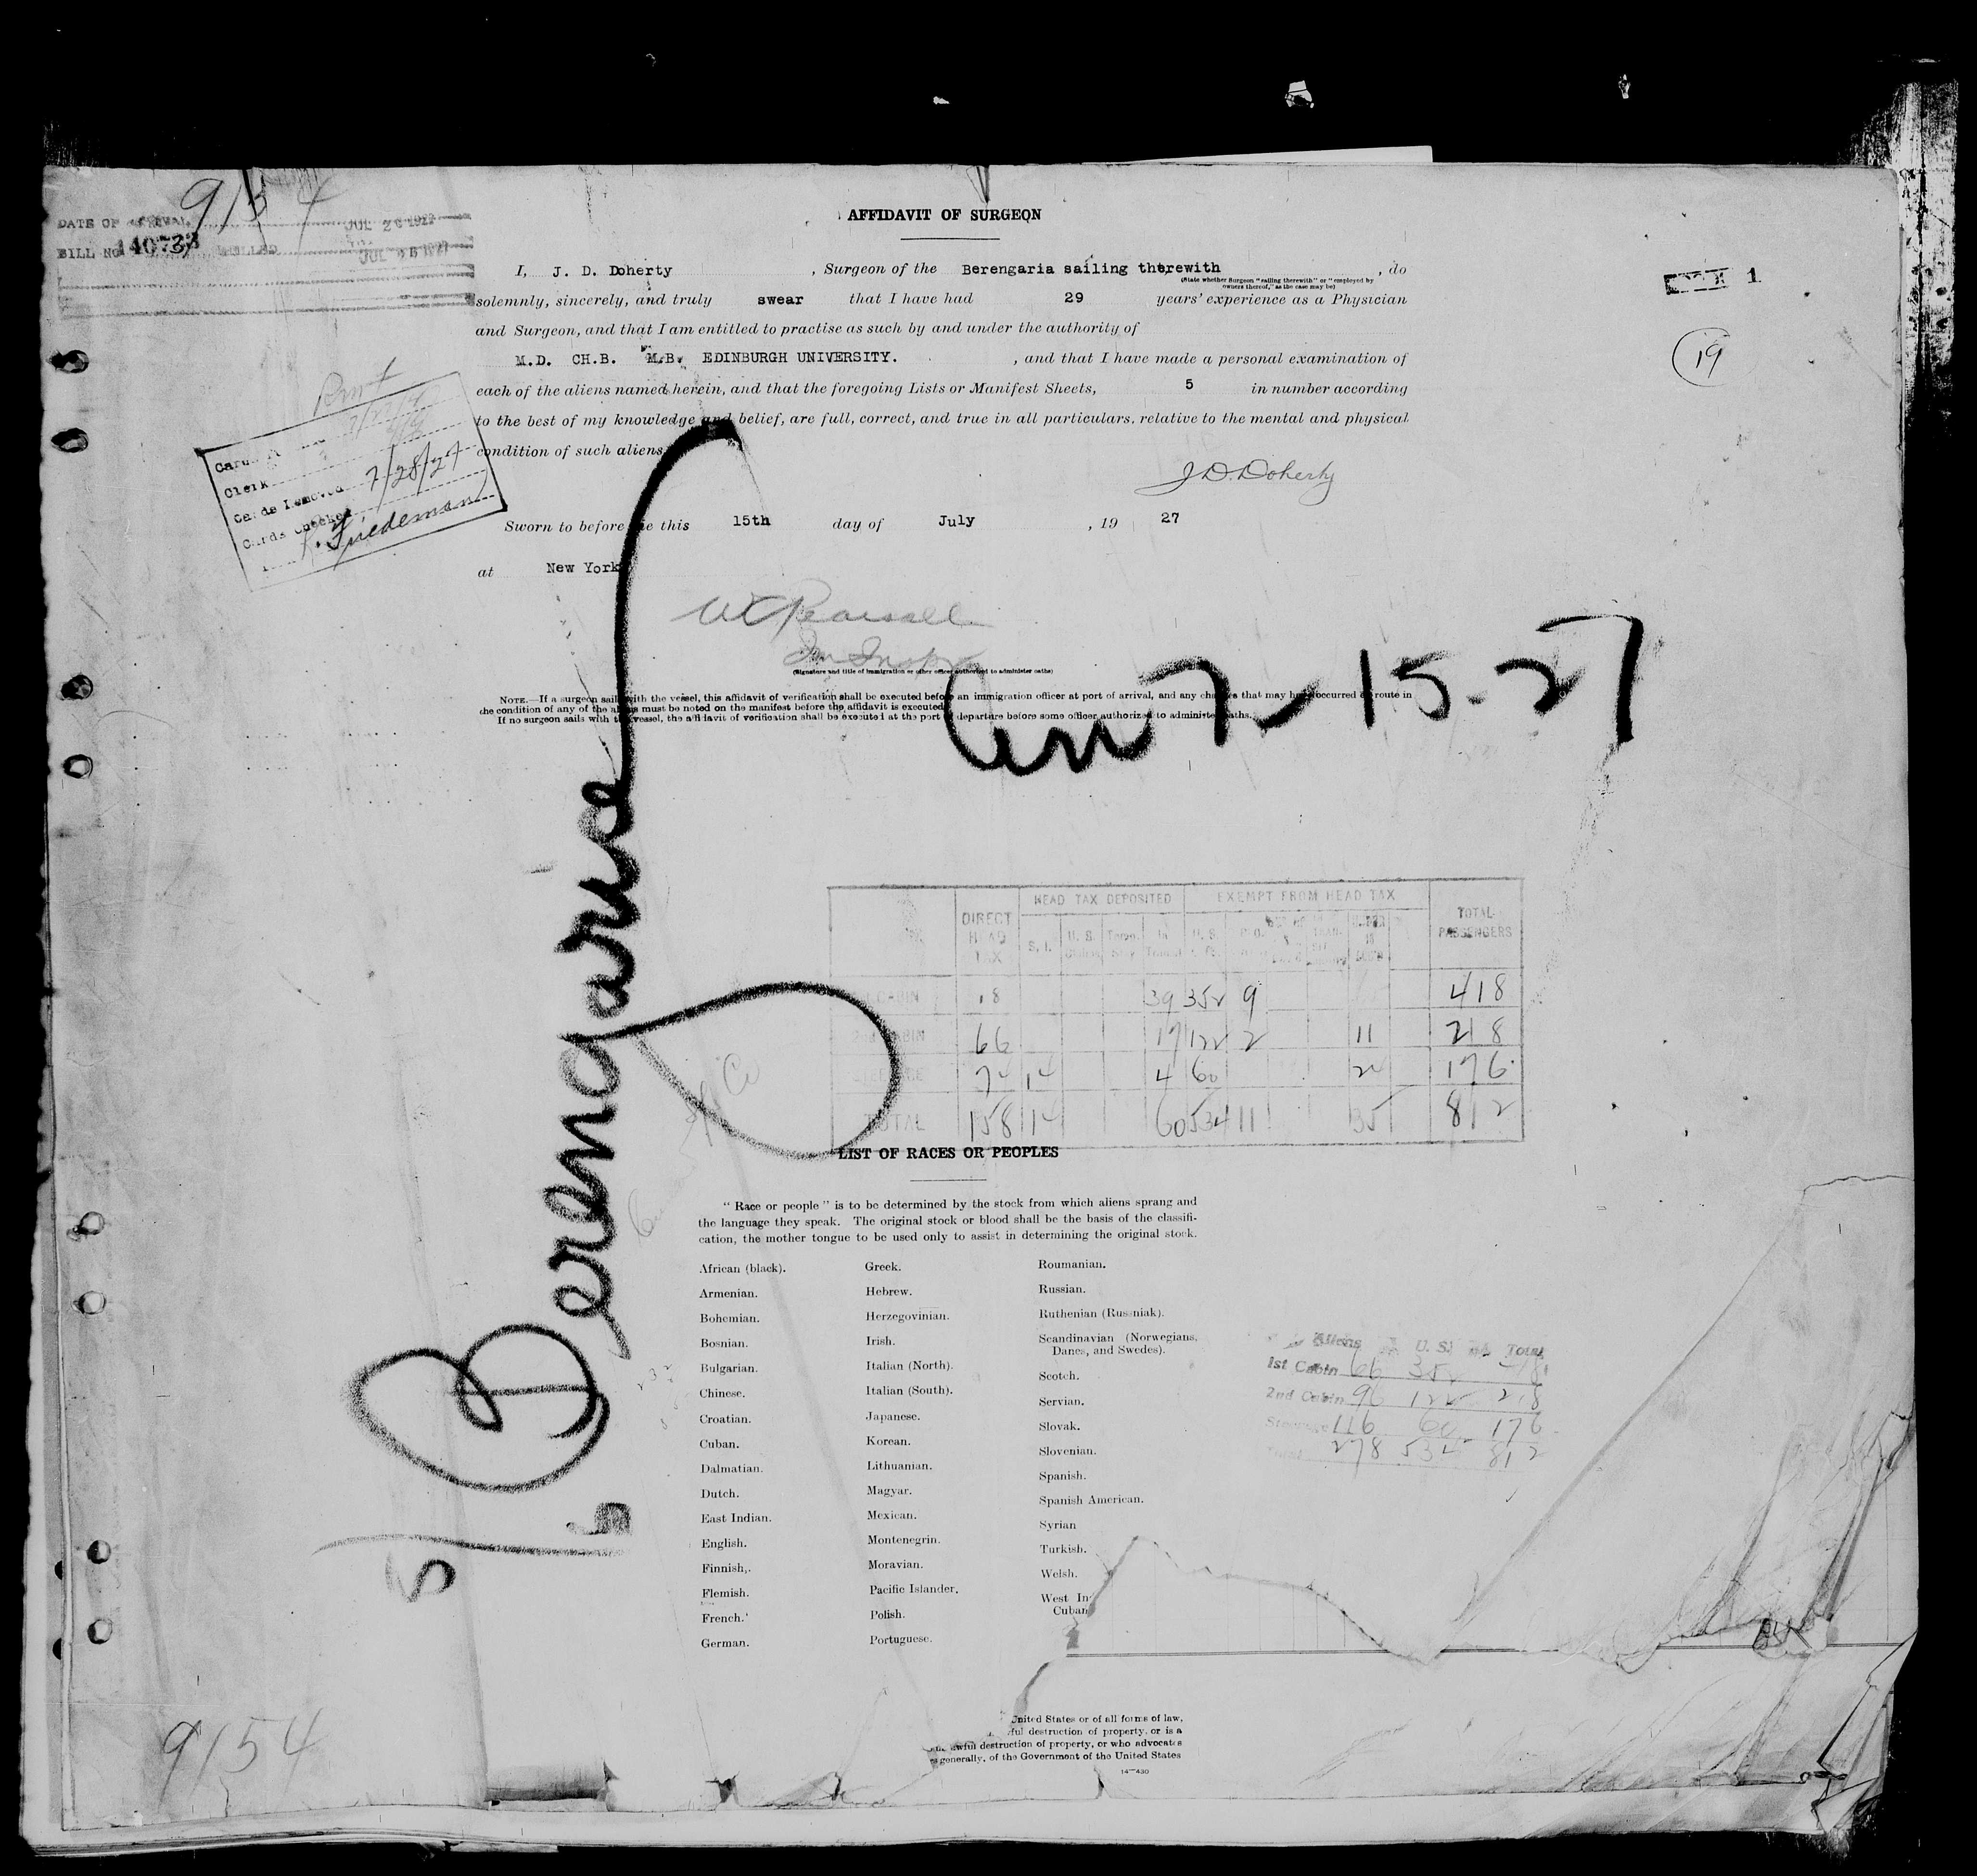 9154
DATE OF ARRIVAL JUL 26 1927
BILL NO. 140733 BILLED JUL 26 1927
AFFIDAVIT OF SURGEON
I, J. D. Doherty , Surgeon of the Berengaria sailing therewith , do
(State whether Surgeon "sailing therewith" or "employed by
owners thereof," as the case may be)
solemnly, sincerely, and truly swear that I have had 29 years' experience as a Physician
and Surgeon, and that I am entitled to practise as such by and under the authority of
M.D. CH.B. M.B. EDINBURGH UNIVERSITY. , and that I have made a personal examination of
each of the aliens named herein, and that the foregoing Lists or Manifest Sheets, 5 in number according
to the best of my knowledge and belief, are full, correct, and true in all particulars, relative to the mental and physical
condition of such aliens
J.D. Doherty
1
19
Clerk
Cards Removed 7/28/27
Cards Checked
Friedeman
Sworn to before me this 15th day of July , 19 27
at New York
W C Pearsall
Im Inspr
(Signature and title of immigration or other officer authorized to administer oaths)
NOTE.—If a surgeon sails with the vessel, this affidavit of verification shall be executed before an immigration officer at port of arrival, and any changes that may have occurred en route in
the condition of any of the aliens must be noted on the manifest before the affidavit is executed
If no surgeon sails with the vessel, the affidavit of verification shall be executed at the port of departure before some officer authorized to administer oaths.
Arr 7-15-27
Berengaria
HEAD TAX DEPOSITED EXEMPT FROM HEAD TAX
DIRECT HEAD TAX S. I. U. S. In Transit U. S. UNDER 16 TOTAL PASSENGERS
CABIN 18 39 352 9 418
CABIN 66 17 122 2 11 218
STEERAGE 74 14 4 60 24 176
TOTAL 158 14 60 534 11 35 812
LIST OF RACES OR PEOPLES
"Race or people" is to be determined by the stock from which aliens sprang and
the language they speak. The original stock or blood shall be the basis of the classifi-
cation, the mother tongue to be used only to assist in determining the original stock.
African (black).
Armenian.
Bohemian.
Bosnian.
Bulgarian.
Chinese.
Croatian.
Cuban.
Dalmatian.
Dutch.
East Indian.
English.
Finnish.
Flemish.
French.
German.
Greek.
Hebrew.
Herzegovinian.
Irish.
Italian (North).
Italian (South).
Japanese.
Korean.
Lithuanian.
Magyar.
Mexican.
Montenegrin.
Moravian.
Pacific Islander.
Polish.
Portuguese.
Roumanian.
Russian.
Ruthenian (Russniak).
Scandinavian (Norwegians,
Danes, and Swedes).
Scotch.
Servian.
Slovak.
Slovenian.
Spanish.
Spanish American.
Syrian
Turkish.
Welsh.
West In
Cuban
Aliens U. S. Total
1st Cabin 66 352 418
2nd Cabin 96 122 218
Steerage 116 60 176
Total 278 534 812
5
United States or of all forms of law,
ful destruction of property, or is a
awful destruction of property, or who advocates
generally, of the Government of the United States
14—430
9154